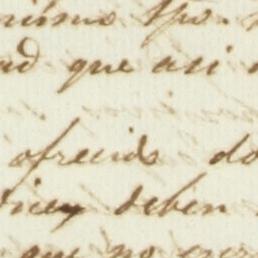 mismo Tpo.
ad que asi
ofrecido do
dicen deben
que no